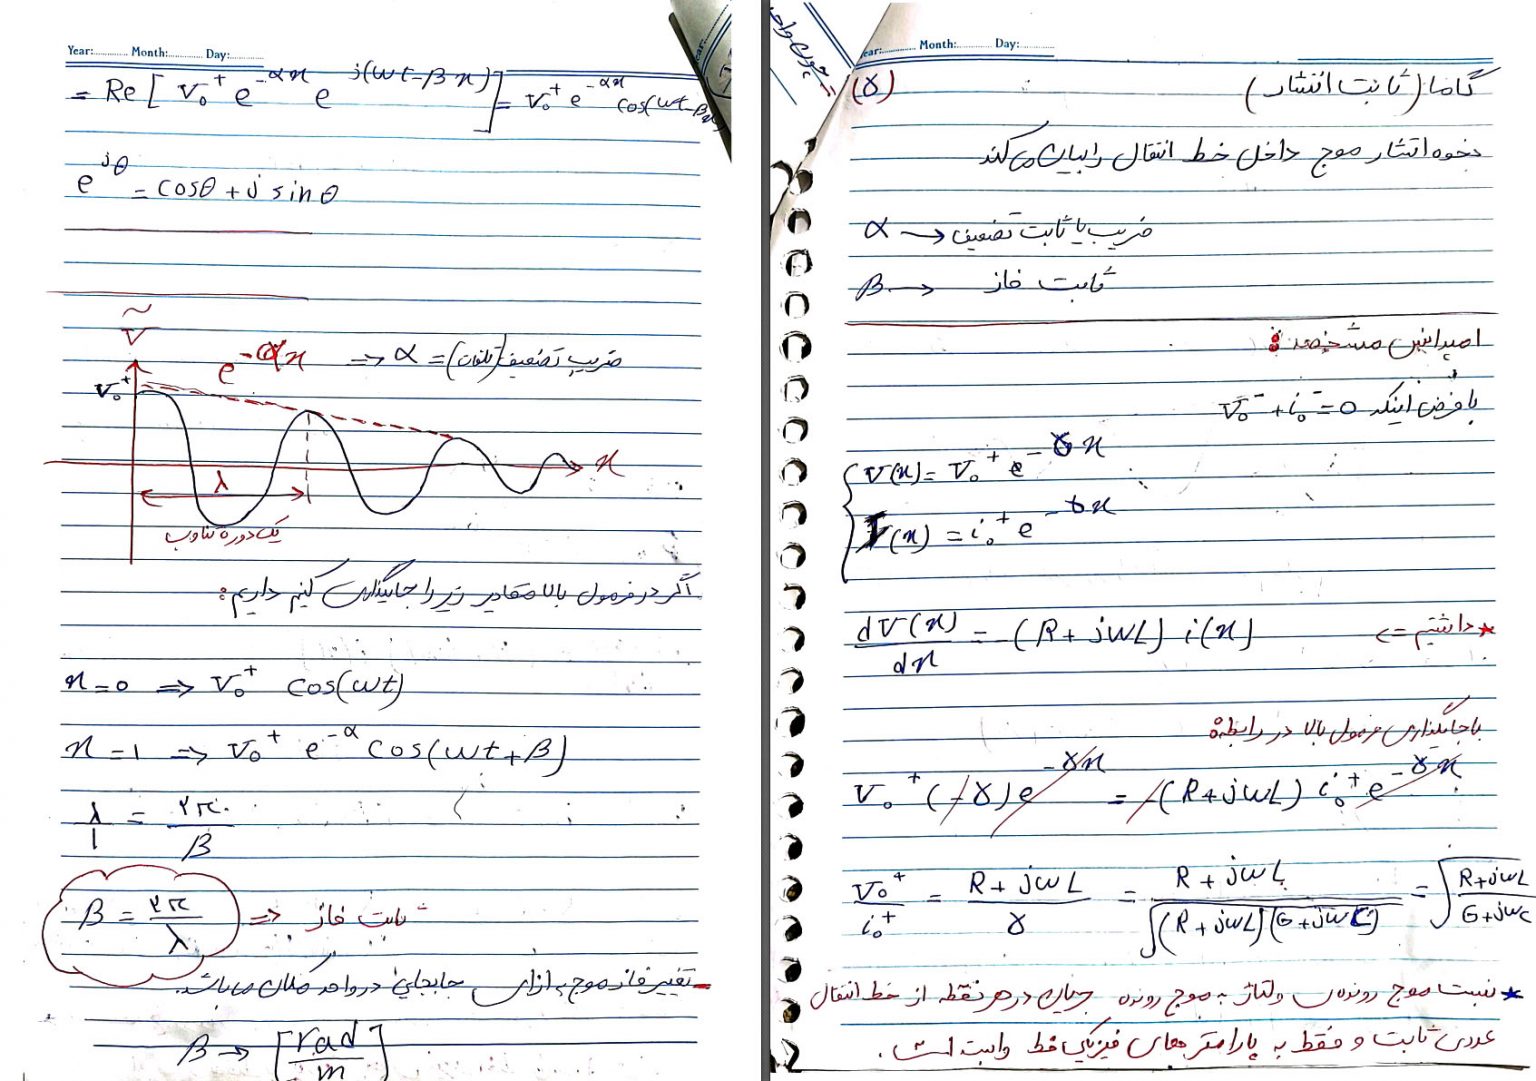 Year:............ Month:............ Day:............
= Re [ V₀⁺ e^-αx e^j(ωt-βx) ] = V₀⁺ e^-αx cos(ωt-βx)
e^jθ = cosθ + j sinθ
Ṽ
V₀⁺
e^-αx ⇒ α = (تلفات) ضریب تضعیف
x
λ
یک دوره تناوب
اگر در فرمول بالا مقادیر زیر را جایگذاری کنیم داریم:
x=0 ⇒ V₀⁺ cos(ωt)
x=1 ⇒ V₀⁺ e^-α cos(ωt+β)
λ/1 = ۲π/β
β = ۲π/λ ⇒ ثابت فاز
- تغییر فاز موج به ازای جابجایی در واحد مکان می باشد.
β → [rad/m]
ear:............ Month:............ Day:............
گاما (ثابت انتشار) (γ)
نحوه انتشار موج داخل خط انتقال را بیان می کند
α → ضریب یا ثابت تضعیف
β → ثابت فاز
امپدانس مشخصه:
با فرض اینکه V₀⁻ + i₀⁻ = 0
V(x) = V₀⁺ e^-γx
I(x) = i₀⁺ e^-γx
* داشتیم => dV(x)/dx = (R+jωL) i(x)
با جایگذاری فرمول بالا در رابطه:
V₀⁺ (-γ) e^-γx = -(R+jωL) i₀⁺ e^-γx
V₀⁺/i₀⁺ = R+jωL/γ = R+jωL/√(R+jωL)(G+jωC) = √R+jωL/G+jωC
* نسبت موج رونده ی ولتاژ به موج رونده جریان در هر نقطه از خط انتقال
عددی ثابت و فقط به پارامترهای فیزیکی خط وابسته است.